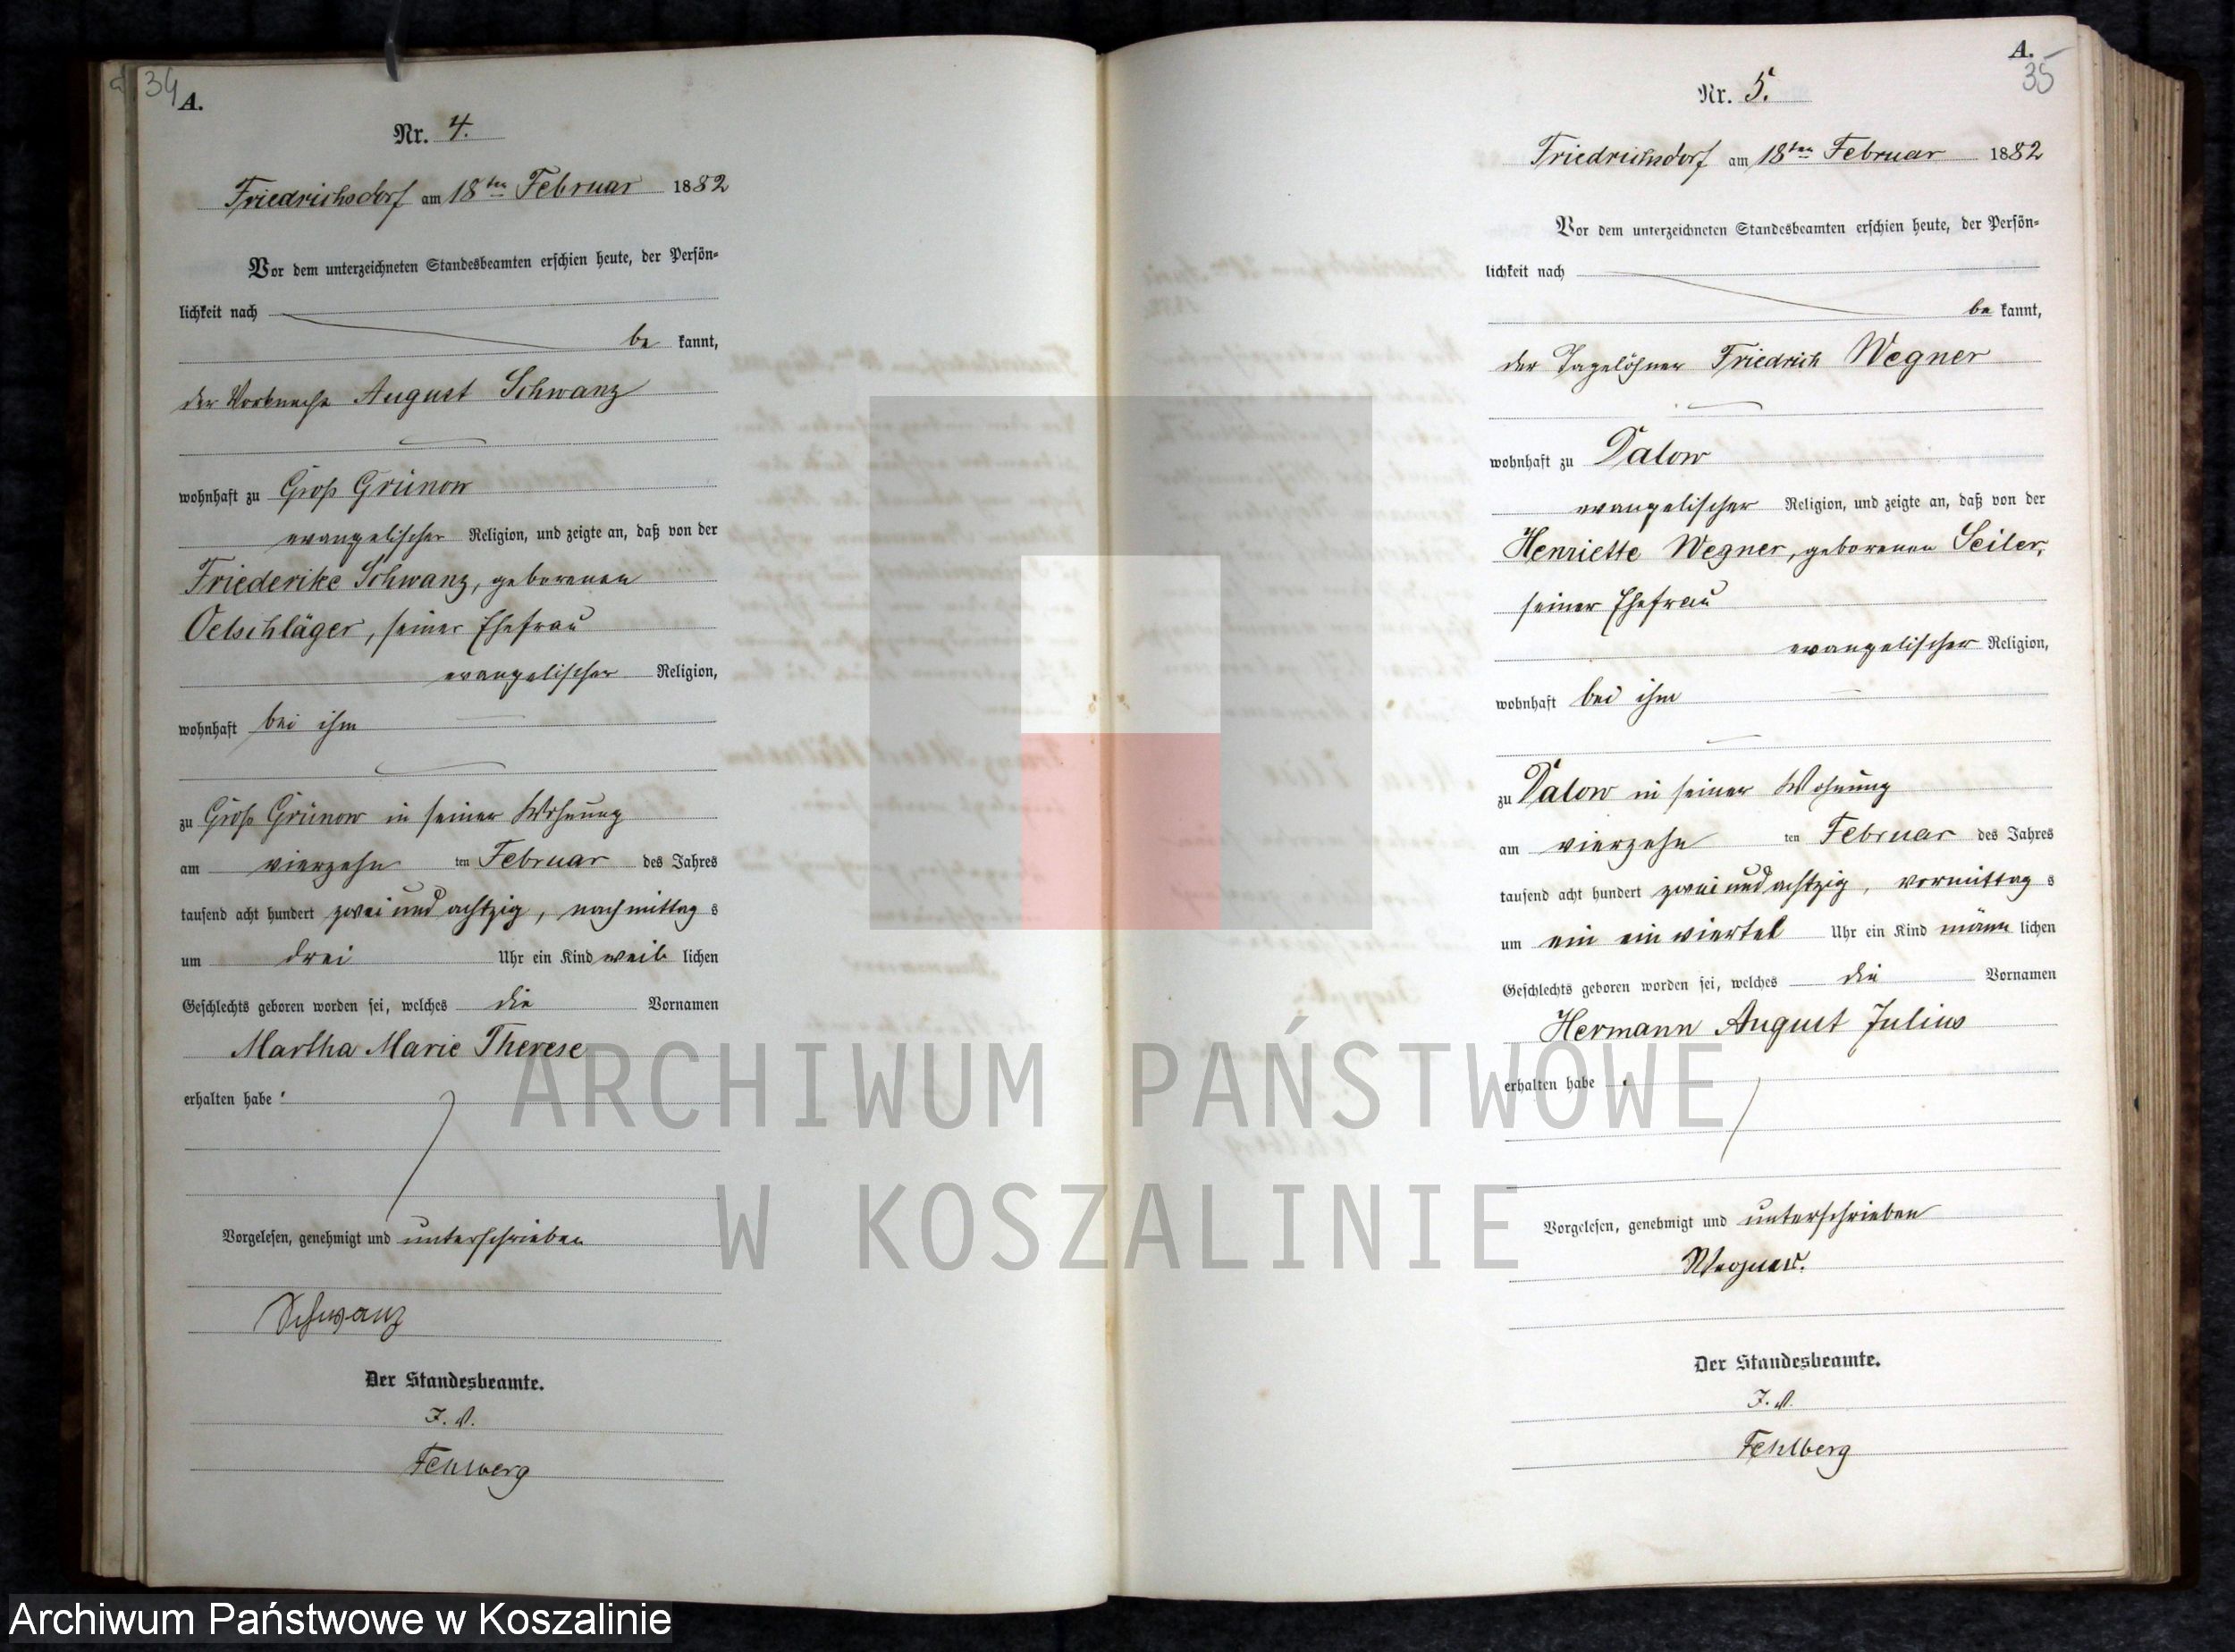 34
A.
Nr. 4.
Friedrichsdorf am 18ten Februar 1882
Vor dem unterzeichneten Standesbeamten erschien heute, der Persön-
lichkeit nach
be kannt,
der Vorknecht August Schwanz
wohnhaft zu Groß Grünow
evangelischer Religion, und zeigte an, daß von der
Friederike Schwanz, geborenen
Oelschläger, seiner Ehefrau
evangelischer Religion,
wohnhaft bei ihm
zu Groß Grünow in seiner Wohnung
am vierzehn ten Februar des Jahres
tausend acht hundert zwei und achtzig, nachmittag s
um drei Uhr ein Kind weib lichen
Geschlechts geboren worden sei, welches die Vornamen
Martha Marie Therese
erhalten habe.
Vorgelesen, genehmigt und unterschrieben
Schwanz
Der Standesbeamte.
I. V.
Fehlberg
A.
35
Nr. 5.
Friedrichsdorf am 18ten Februar 1882
Vor dem unterzeichneten Standesbeamten erschien heute, der Persön-
lichkeit nach
be kannt,
der Tagelöhner Friedrich Wegner
wohnhaft zu Dalow
evangelischer Religion, und zeigte an, daß von der
Henriette Wegner, geborenen Seiler,
seiner Ehefrau
evangelischer Religion,
wohnhaft bei ihm
zu Dalow in seiner Wohnung
am vierzehn ten Februar des Jahres
tausend acht hundert zwei und achtzig, vormittag s
um ein ein viertel Uhr ein Kind männ lichen
Geschlechts geboren worden sei, welches die Vornamen
Hermann August Julius
erhalten habe.
Vorgelesen, genehmigt und unterschrieben
Wegner.
Der Standesbeamte.
I. V.
Fehlberg
ARCHIWUM PAŃSTWOWE
W KOSZALINIE
Archiwum Państwowe w Koszalinie